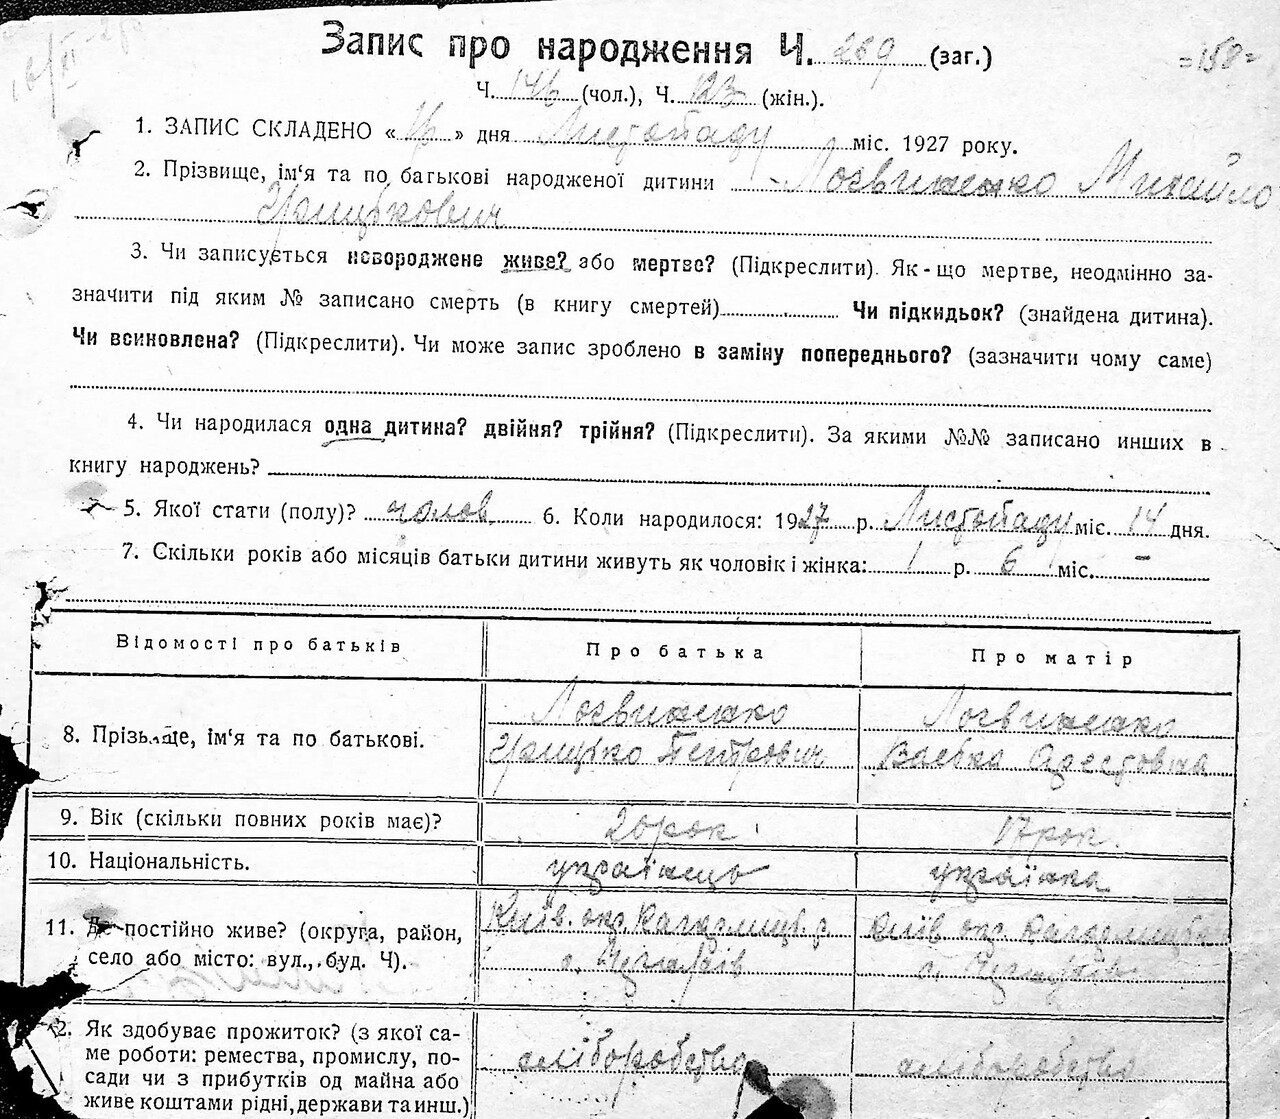 Запис про народження Ч. 269 (заг.)
=158=
Ч. 146 (чол.), Ч. 123 (жін.).
1. ЗАПИС СКЛАДЕНО «16» дня Листопаду міс. 1927 року.
2. Прізвище, ім‘я та по батькові народженої дитини Логвиненко Михайло
Грицькович
3. Чи записується новороджене живе? або мертве? (Підкреслити). Як-що мертве, неодмінно за-
значити під яким № записано смерть (в книгу смертей) Чи підкидьок? (знайдена дитина).
Чи всиновлена? (Підкреслити). Чи може запис зроблено в заміну попереднього? (зазначити чому саме)
4. Чи народилася одна дитина? двійня? трійня? (Підкреслити). За якими №№ записано инших в
книгу народжень?
5. Якої стати (полу)? чолов. 6. Коли народилося: 1927 р. Листопаду міс. 14 дня.
7. Скільки років або місяців батьки дитини живуть як чоловік і жінка: 1 р. 6 міс. –
Відомості про батьків Про батька Про матір
8. Прізвище, ім‘я та по батькові.
Логвиненко Логвиненко
Грицько Петрович
9. Вік (скільки повних років має)? 20 рок. 17 рок.
10. Національність. українець українка
11. Де постійно живе? (округа, район,
село або місто: вул., буд. Ч).
Київ. окр. Київ окр.
с. с.
12. Як здобуває прожиток? (з якої са-
ме роботи: ремества, промислу, по-
сади чи з прибутків од майна або
живе коштами рідні, держави та инш.)
хліборобство хліборобство